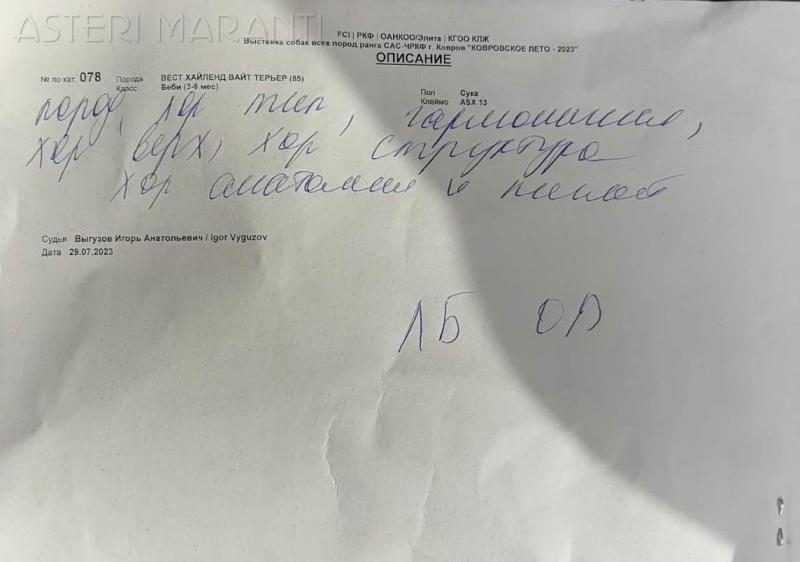 ASTERI MARANTI
FCI | РКФ | ОАНКОО/Элита | КГОО КЛЖ
Выставка собак всех пород ранга САС-ЧРКФ г. Ковров "КОВРОВСКОЕ ЛЕТО - 2023"
ОПИСАНИЕ
№ по кат. 078 Порода ВЕСТ ХАЙЛЕНД ВАЙТ ТЕРЬЕР (85) Пол Сука
Класс Беби (3-6 мес) Клеймо ASX 13
пород, хор тип, гармоничная,
хор верх, хор структура
хор анатомия и
Судья Выгузов Игорь Анатольевич / Igor Vyguzov
Дата 29.07.2023
ЛБ ОП